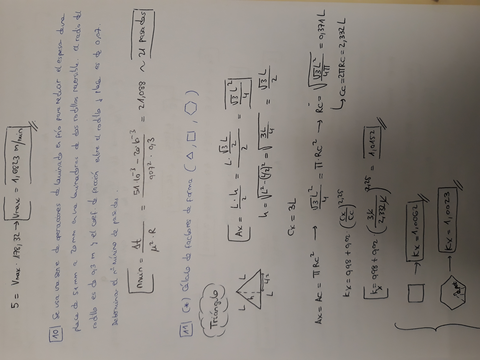 5 = Vmax · 178,32 → Vmax = 1,0823 m/min
10) Se usa una serie de operaciones de laminado en frío para reducir el espesor de una
placa de mm a 20 mm en una laminadora de dos rodillos reversible. El radio del
rodillo es de 0,3 m y el coef. de fricción entre el rodillo y placa es de 0,17.
Determine el número de pasadas.
mmin = Δt / μ² · R = 51·10⁻³ - 20·10⁻³ / · 0,3 = 21,088 ~ 22 pasadas
11) (*) Cálculo de factores de forma (△, □, ⬡)
Triángulo
L L h L/2 L
Ax = L · h / 2 = L · √3 L/2 / 2 = √3 L² / 4
h = √(L² - (L/2)²) = √(3L/4) = √3 L / 2
Cx = 3L
Ax = Ac = πRc² → √3 L² / 4 = π · Rc² → Rc = √(√3 L² / 4π) = 0,371 L
↳ Cc = 2πRc = 2,332 L
Kx = 0,98 + 0,02 (Cx/Cc)^2,25
Kx = 0,98 + 0,02 (3L / 2,332 L)^2,25 = 1,0152
□ → Kx = 1,0062
⬡ → Kx = 1,0023